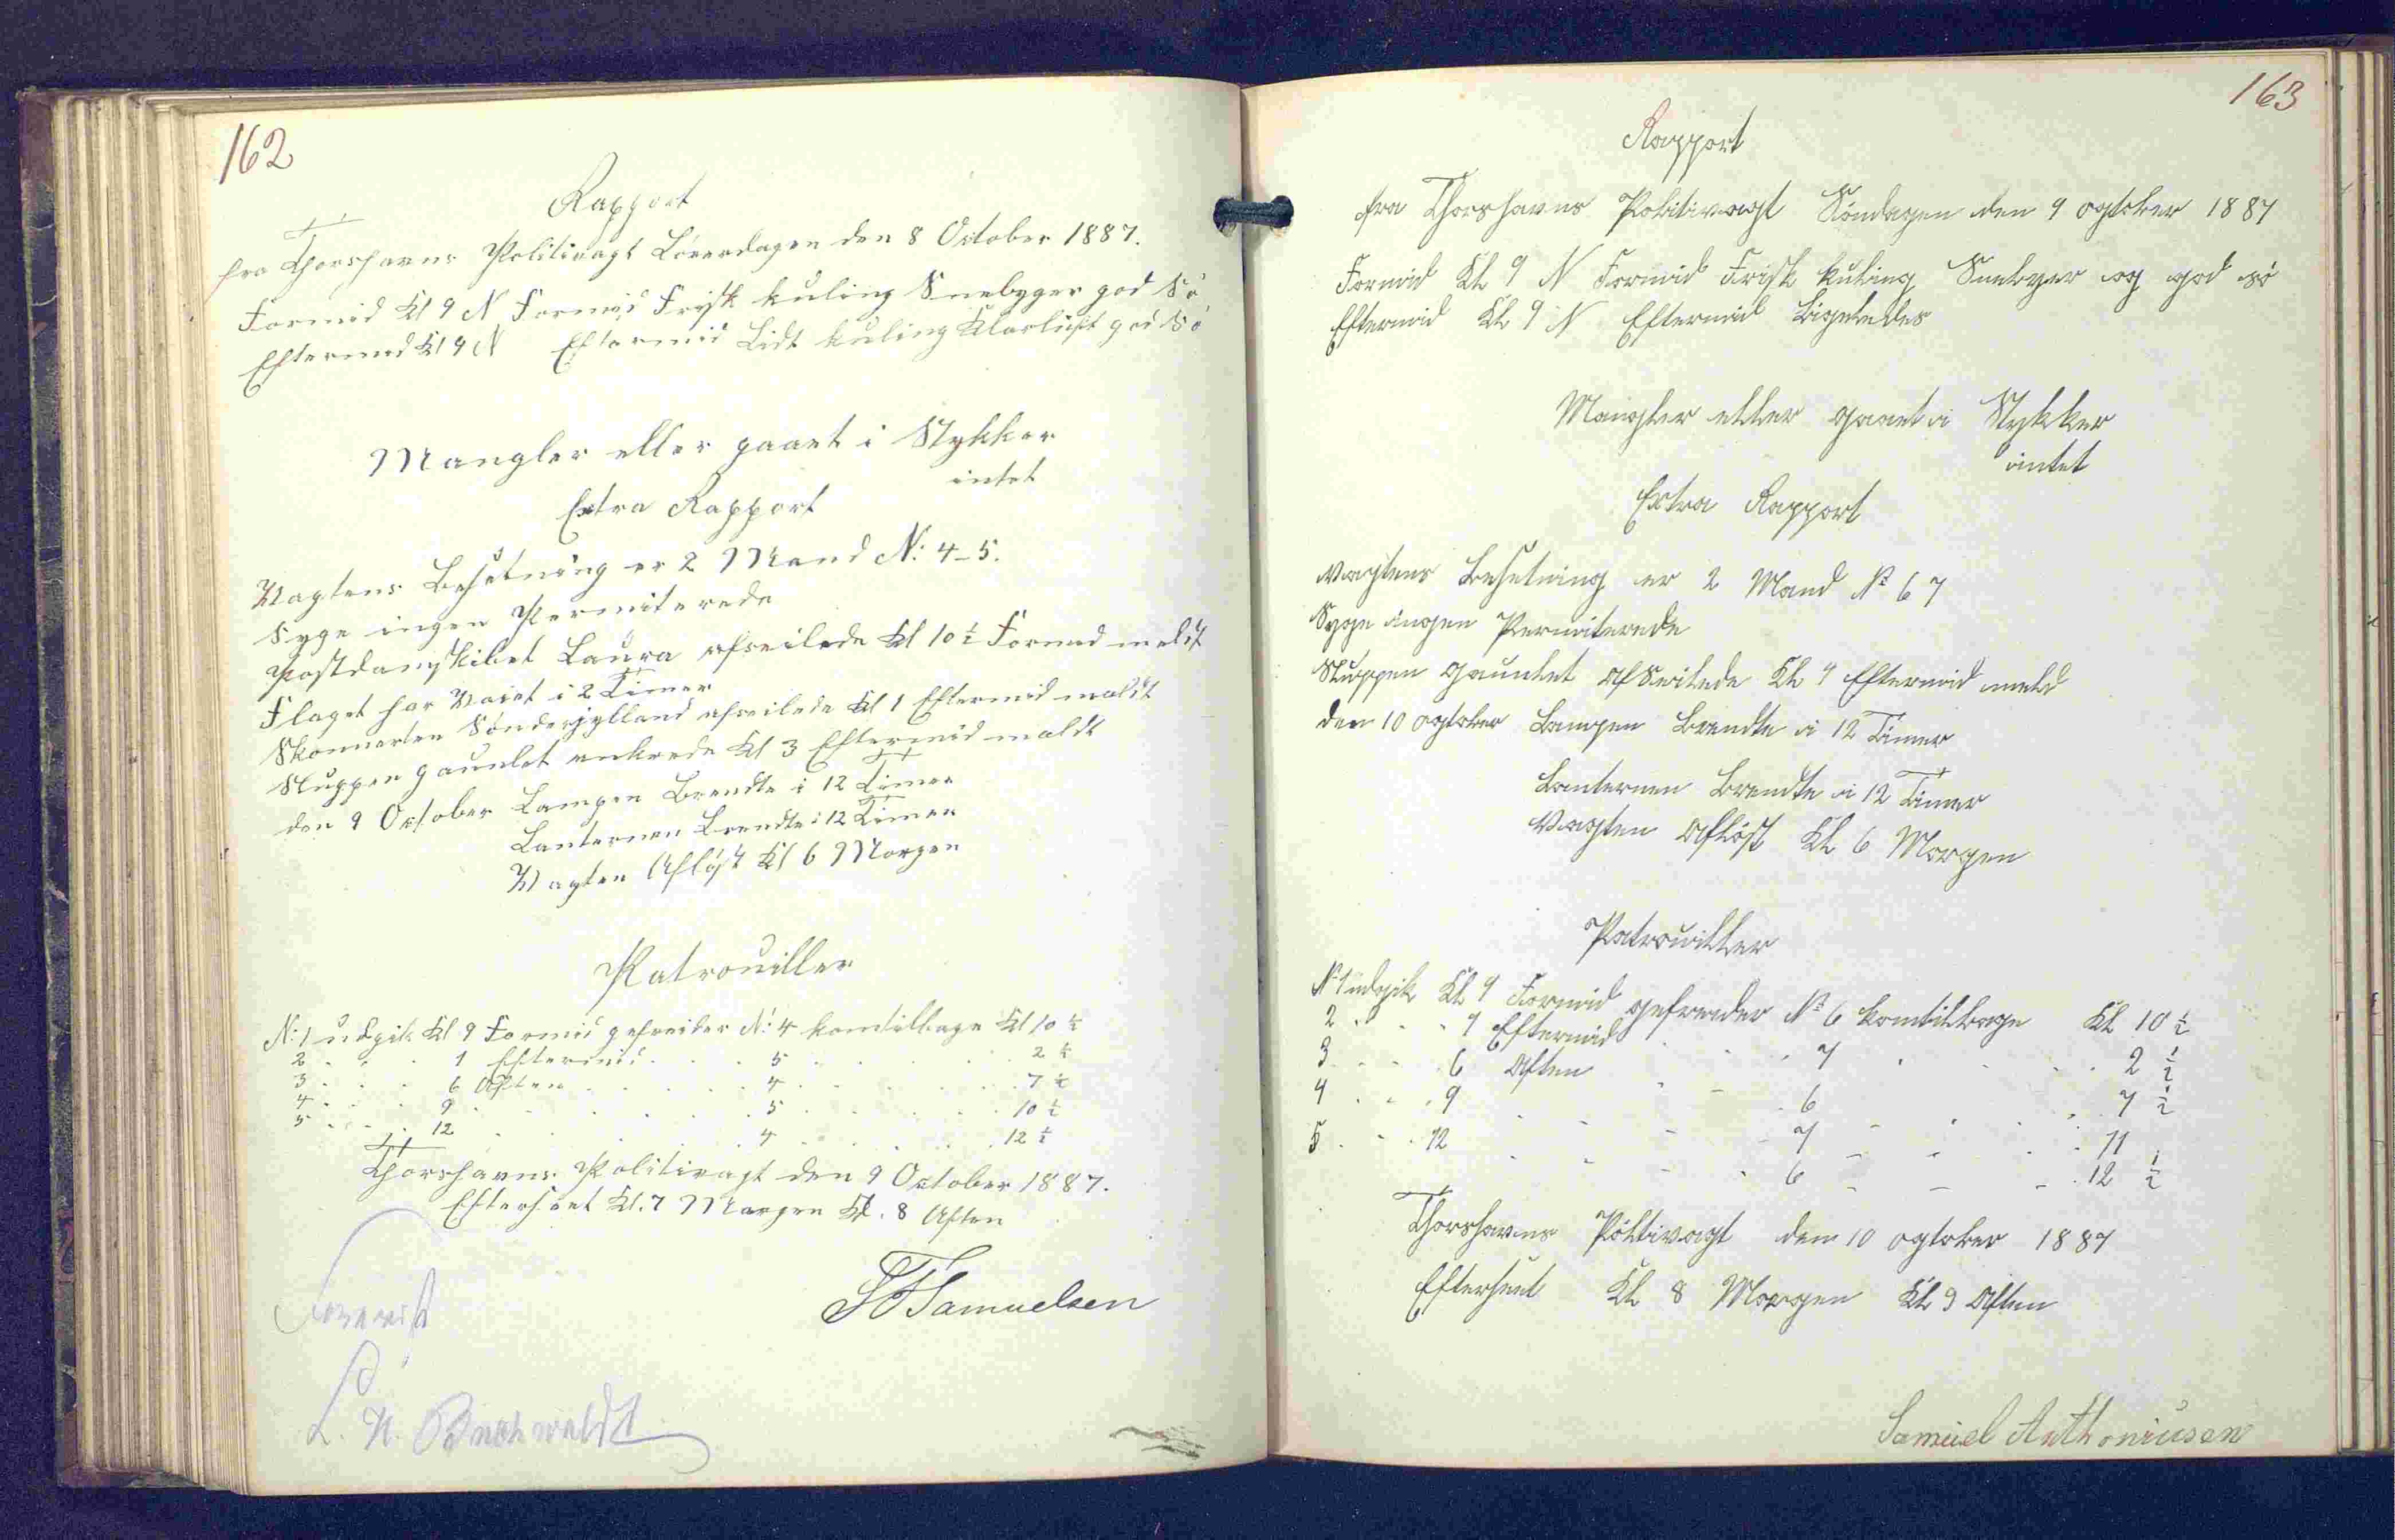 162
Rapport
fra Thorshavns Politivagt Löverdagen den 8 October 1887.
Formid Kl 9 N Formid Frisk kuling Snebyger god Sö
Eftermid Kl 9 N Eftermid Lidt kuling Klarluft god Sö
Mangler eller gaaet i Stykker
intet
Extra Rapport
Vagtens Besetning er 2 Mand N: 4-5.
Syge ingen Permiterede
Postdampskibet Laura afseilede Kl 10 ½ Formid meldt
Flaget har Vaiet i 2 Timer
Skonnerten Sönderjylland afseilede Kl 1 Eftermid meldt
Sluppen gauntlet ankrede Kl 3 Eftermid meldt
den 9 October Lampen Brendte i 12 Timer
Lanternen Brendte i 12 Timer
Vagten Aflöst Kl 6 Morgen
Patrouiller
N: 1 udgik Kl 9 Formid gefreider N: 4 komtilbage Kl 10 ½
2 . . . 1 Eftermid . . . 5 . . . 2 ½
3 . . . 6 Aften . . . 4 . . . 7 ½
4 . . . 9 . . . 5 . . . 10 ½
5 . . . 12 . . . 4 . . . 12 ½
Thorshavns Politivagt den 9 October 1887.
Efterseet Kl. 7 Morgen Kl. 8 Aften
Forevist
Samuelsen
L. N. Buchwaldt
163
Rapport
fra Thorshavns Politivagt Söndagen den 9 ogtober 1887
Formid Kl 9 N Formid Frisk kuling Snebyer og god sö
Eftermid Kl 9 N Eftermid Ligeledes
Mangler eller gaaet i Stykker
intet
Extra Rapport
vagtens Besetning er 2 Mand No 6 7
Syge ingen Permiterede
Sluppen gauntlet af Seilede Kl 9 Eftermid meld
den 10 ogtober Lampen Brendte i 12 Timer
Lanternen Brendte i 12 Timer
Vagten Aflöst Kl 6 Morgen
Patrouiller
No 1 udgik Kl 9 Formid gefreider No 6 komtilbage Kl 10 ½
2 . . . 1 Eftermid . . . 7 . . . 2 ½
3 . . . 6 Aften . . . 6 . . . 7 ½
4 . . . 9 . . . 7 . . . 11
5 . . . 12 . . . 6 . . . 12 ½
Thorshavns Politivagt den 10 ogtober 1887
Efterseet Kl 8 Morgen Kl 9 Aften
Samuel Anthoniusen